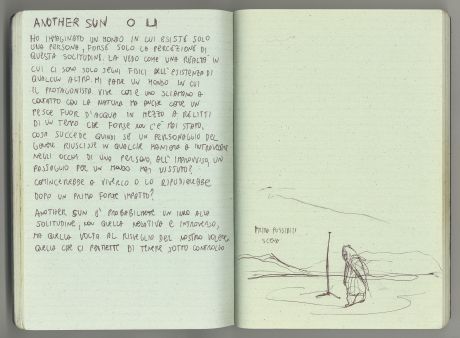 ANOTHER SUN
HO IMMAGINATO UN MONDO IN CUI ESISTE SOLO
UNA PERSONA, FORSE SOLO LA PERCEZIONE DI
QUESTA SOLITUDINE. LA VEDO COME UNA REALTÀ IN
CUI CI SONO SOLO SEGNI FISICI DELL'ESISTENZA DI
QUALCUN ALTRO. MI PARE UN MONDO IN CUI
IL PROTAGONISTA VIVE COME UNO SCIAMANO A
CONTATTO CON LA NATURA MA ANCHE COME UN
PESCE FUOR D'ACQUA IN MEZZO A RELITTI
DI UN TEMPO CHE FORSE NON C'È MAI STATO.
COSA SUCCEDE QUINDI SE UN PERSONAGGIO DEL
GENERE RIUSCISSE IN QUALCHE MANIERA A INTRODURRE
NEGLI OCCHI DI UNA PERSONA, ALL'IMPROVVISO, UN
PASSAGGIO PER UN MONDO MAI VISSUTO?
COMINCEREBBE A VIVERLO O LO RIPUDIEREBBE
DOPO UN PRIMO FORTE IMPATTO?
ANOTHER SUN È PROBABILMENTE UN INNO ALLA
SOLITUDINE, NON QUELLA NEGATIVA E INTROVERSA,
MA QUELLA VOLTA AL RISVEGLIO DEL NOSTRO VOLERE,
QUELLA CHE CI PERMETTE DI TENERE SOTTO CONTROLLO
PRIMA POSSIBILE
SCENA